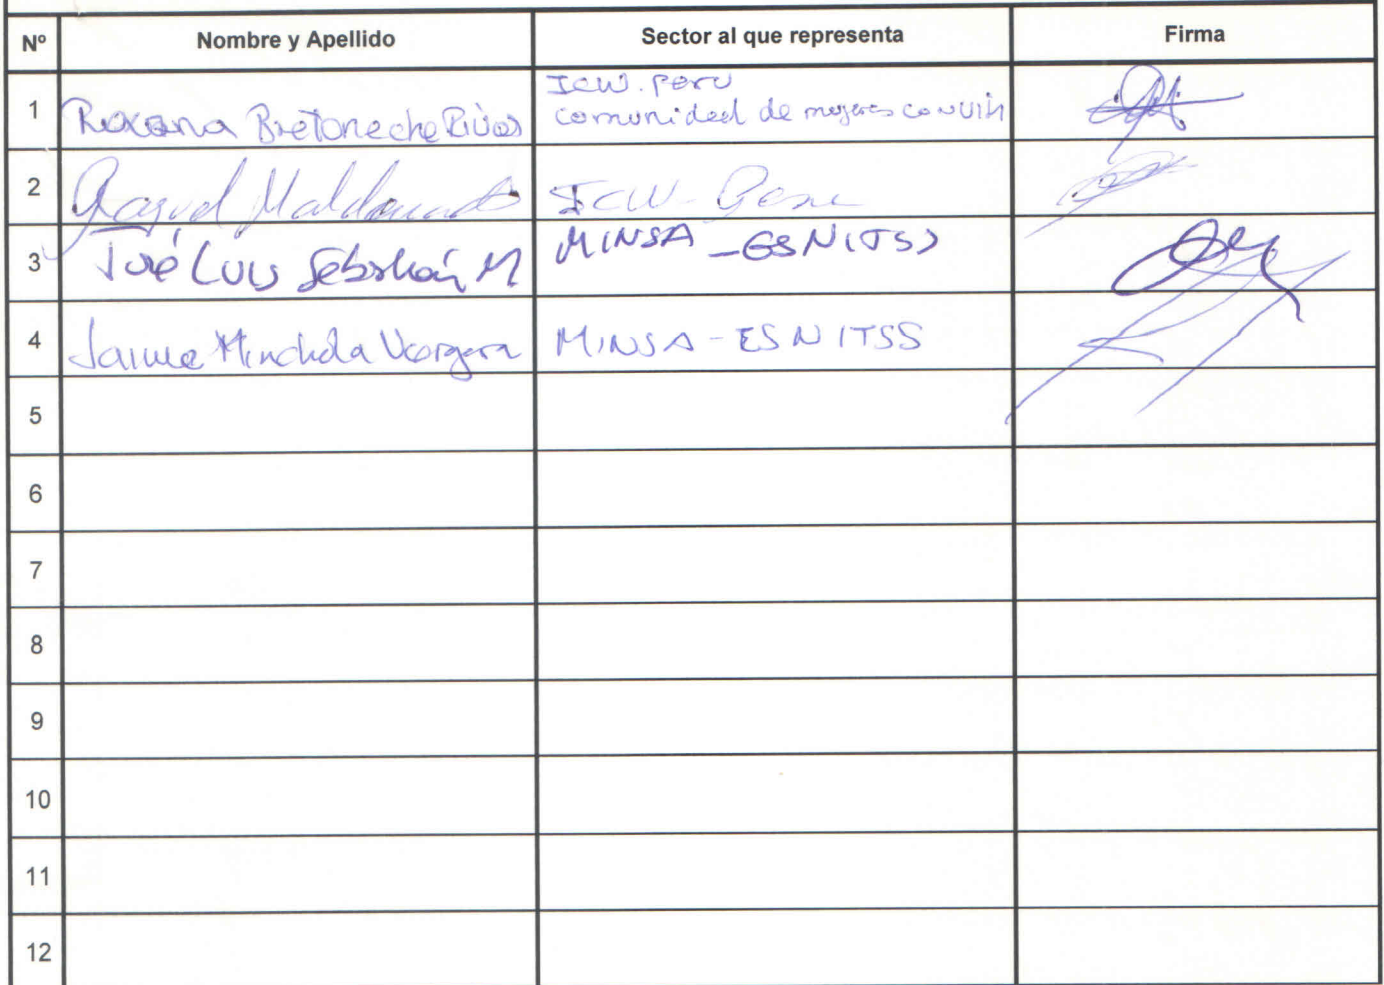 Nº Nombre y Apellido Sector al que representa Firma
1 Roxana Bretoneche Rivas ICW. Perú
comunidad de mujeres con VIH
2 Raquel Maldonado ICW - Peru
3 José Luis Sebastián M MINSA - ESNITSS
4 Jaime Minchola Vergara MINSA - ESNITSS
5
6
7
8
9
10
11
12